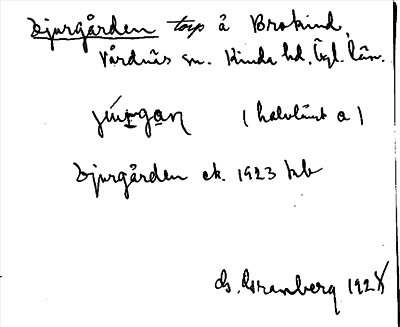 Djurgården torp å Brokind,
Vårdnäs sn. Kinda hd. Ögl. län.
(halvlångt a)
Djurgården ek. 1923 kb
G. Granberg 192